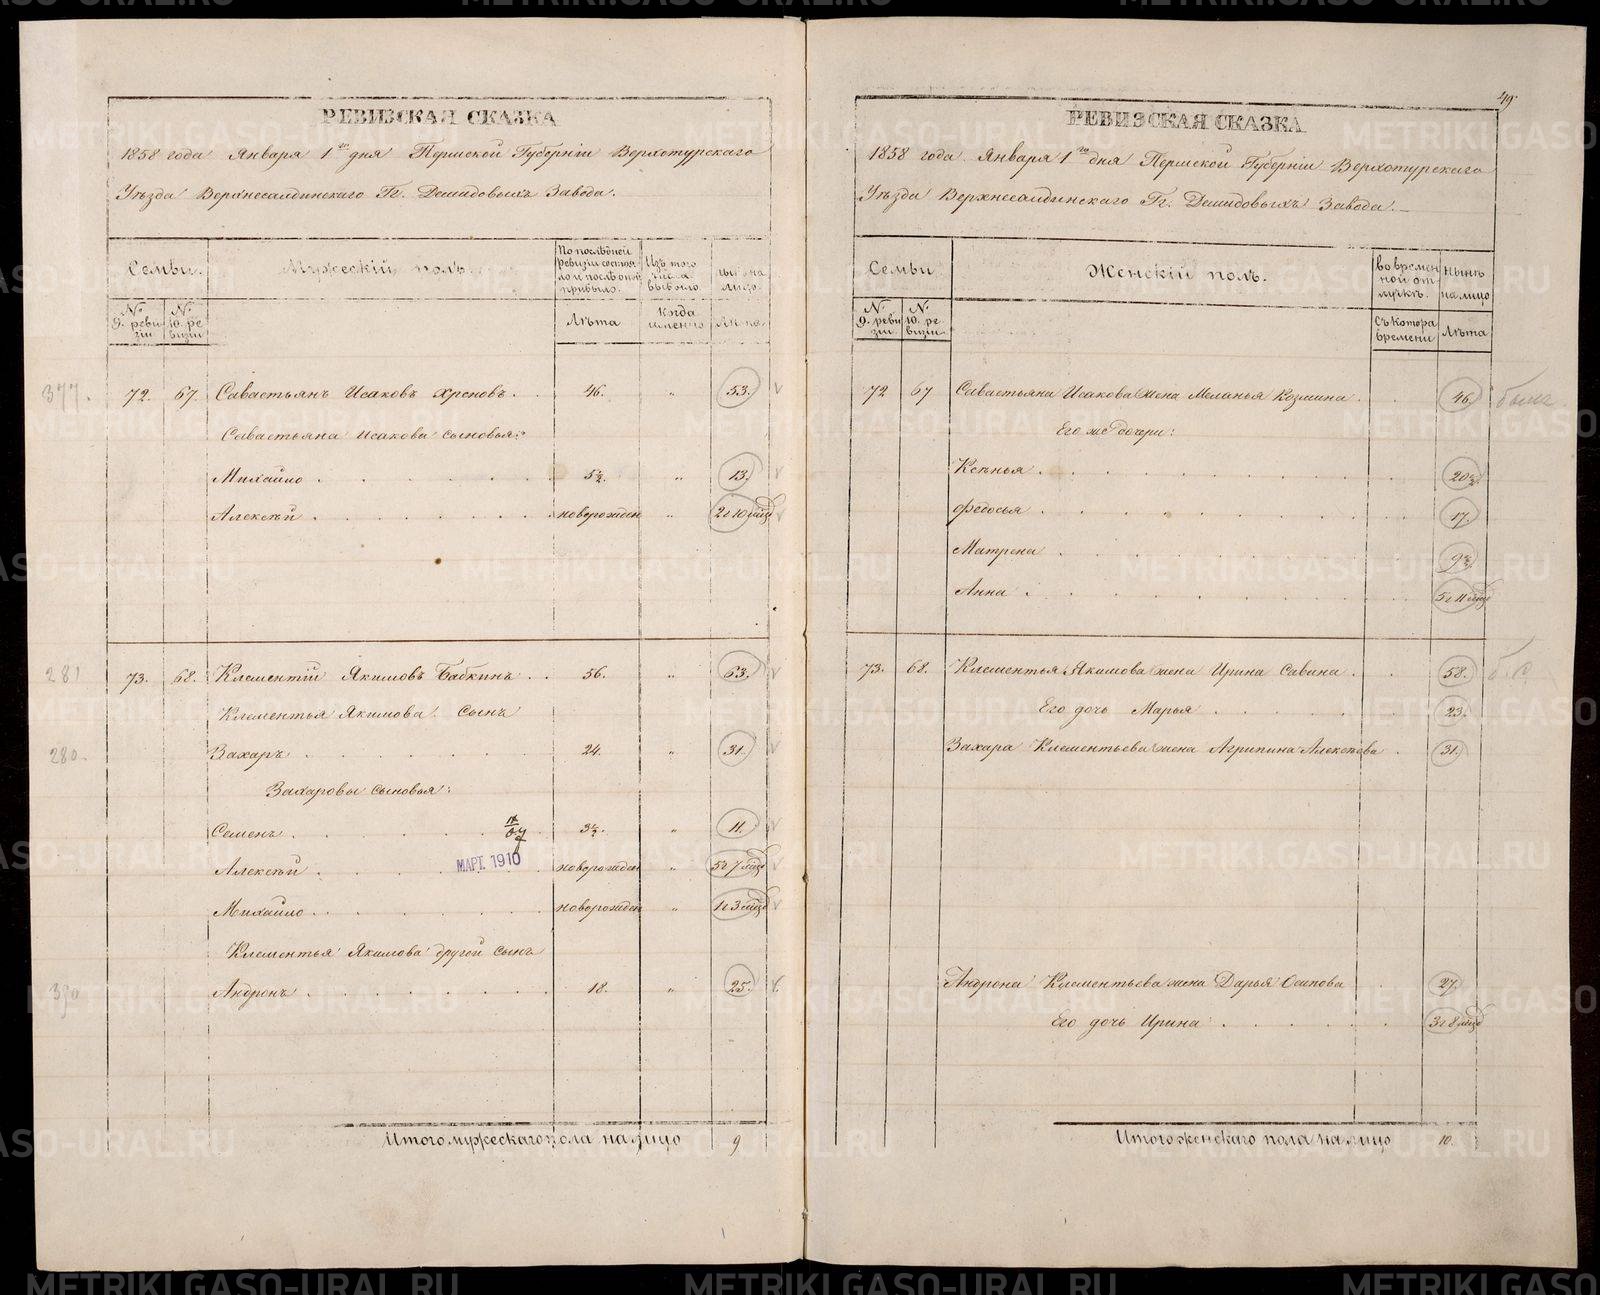 РЕВИЗСКАЯ СКАЗКА
1858 года Января 1го дня Пермской Губерніи Верхотурскаго
Уѣзда Верхнесалдинскаго Гг. Демидовыхъ Завода.
Семьи. Мужескій полъ.
По послѣдней ревизіи состояло и послѣ оной прибыло. Изъ того числа выбыло. Нынѣ на лицо.
№ 9. ревизіи № 10. ревизіи Лѣта Когда именно Лѣта.
377. 72. 67. Савастьянъ Исаковъ Хреновъ. 46. " 53.
Савастьяна Исакова сыновья:
Михайло 5½. " 13.
Алексѣй новорожден " 2 г 10 мѣсд
281 73. 68. Клементій Якимовъ Бабкинъ 56. " 63.
Клементья Якимова сынъ
280. Захаръ 24. " 31.
Захаровы сыновья:
Семенъ 3½. " 11.
МАРТ. 1910
Алексѣй новорожден " 5 г 7 мѣсд
Михайло новорожден " 1 г 3 мѣсд
Клементья Якимова другой сынъ
Андронъ 18. " 25.
Итого мужескаго пола на лицо 9
49
РЕВИЗСКАЯ СКАЗКА
1858 года Января 1го дня Пермской Губерніи Верхотурскаго
Уѣзда Верхнесалдинскаго Гг. Демидовыхъ Завода.
Семьи Женскій полъ.
во времен ной отлучкѣ. Нынѣ на лицо
№ 9. ревизіи № 10. ревизіи Съ котора времени Лѣта
72 67 Савастьяна Исакова жена Меланья Козмина 46.
Его же дочери:
Ксѣнья 20½
Федосья 17.
Матрена 9½
Анна 5 г 11 мѣсд
73. 68. Клементья Якимова жена Ирина Савина 58.
Его дочь Марья 23.
Захара Клементьева жена Агрипина Алексѣева 31.
Андрона Клементьева жена Дарья Осипова 27.
Его дочь Ирина 3 г 8 мѣсд
Итого женскаго пола на лицо 10.
METRIKI.GASO-URAL.RU